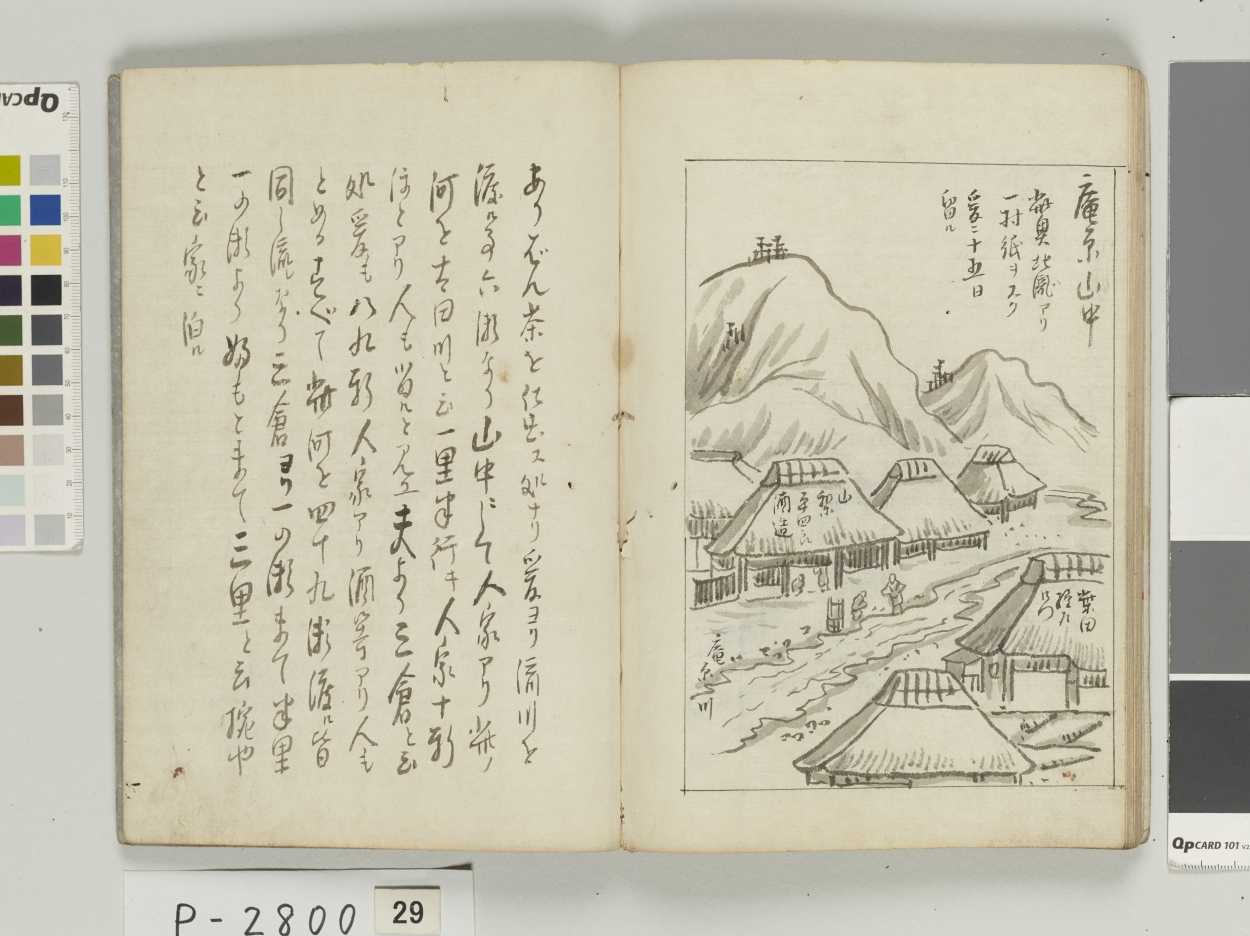 庵原山中
此奥北瀧アリ
一村紙ヲスク
爰ニ十五日
留ル
山梨
平四良
酒造
柴田
庵原川
あり ぜん茶を仕出ス処ナリ 爰ヨリ 流川を
渡ル事六瀬なり 山中にて人家アリ 此ノ
河を古田川と云 一里半行キ人家十軒
ほとアリ 人も留ルと見エ 夫より三倉と云
処 爰も八九軒人家アリ 酒等アリ 人も
とめる すべて此河を四十九瀬渡ル 皆
同し流なり 三倉ヨリ一の瀬まて半里
一の瀬より もとまて三里と云
と云家ニ泊ル
QpCARD 101
P-2800
29